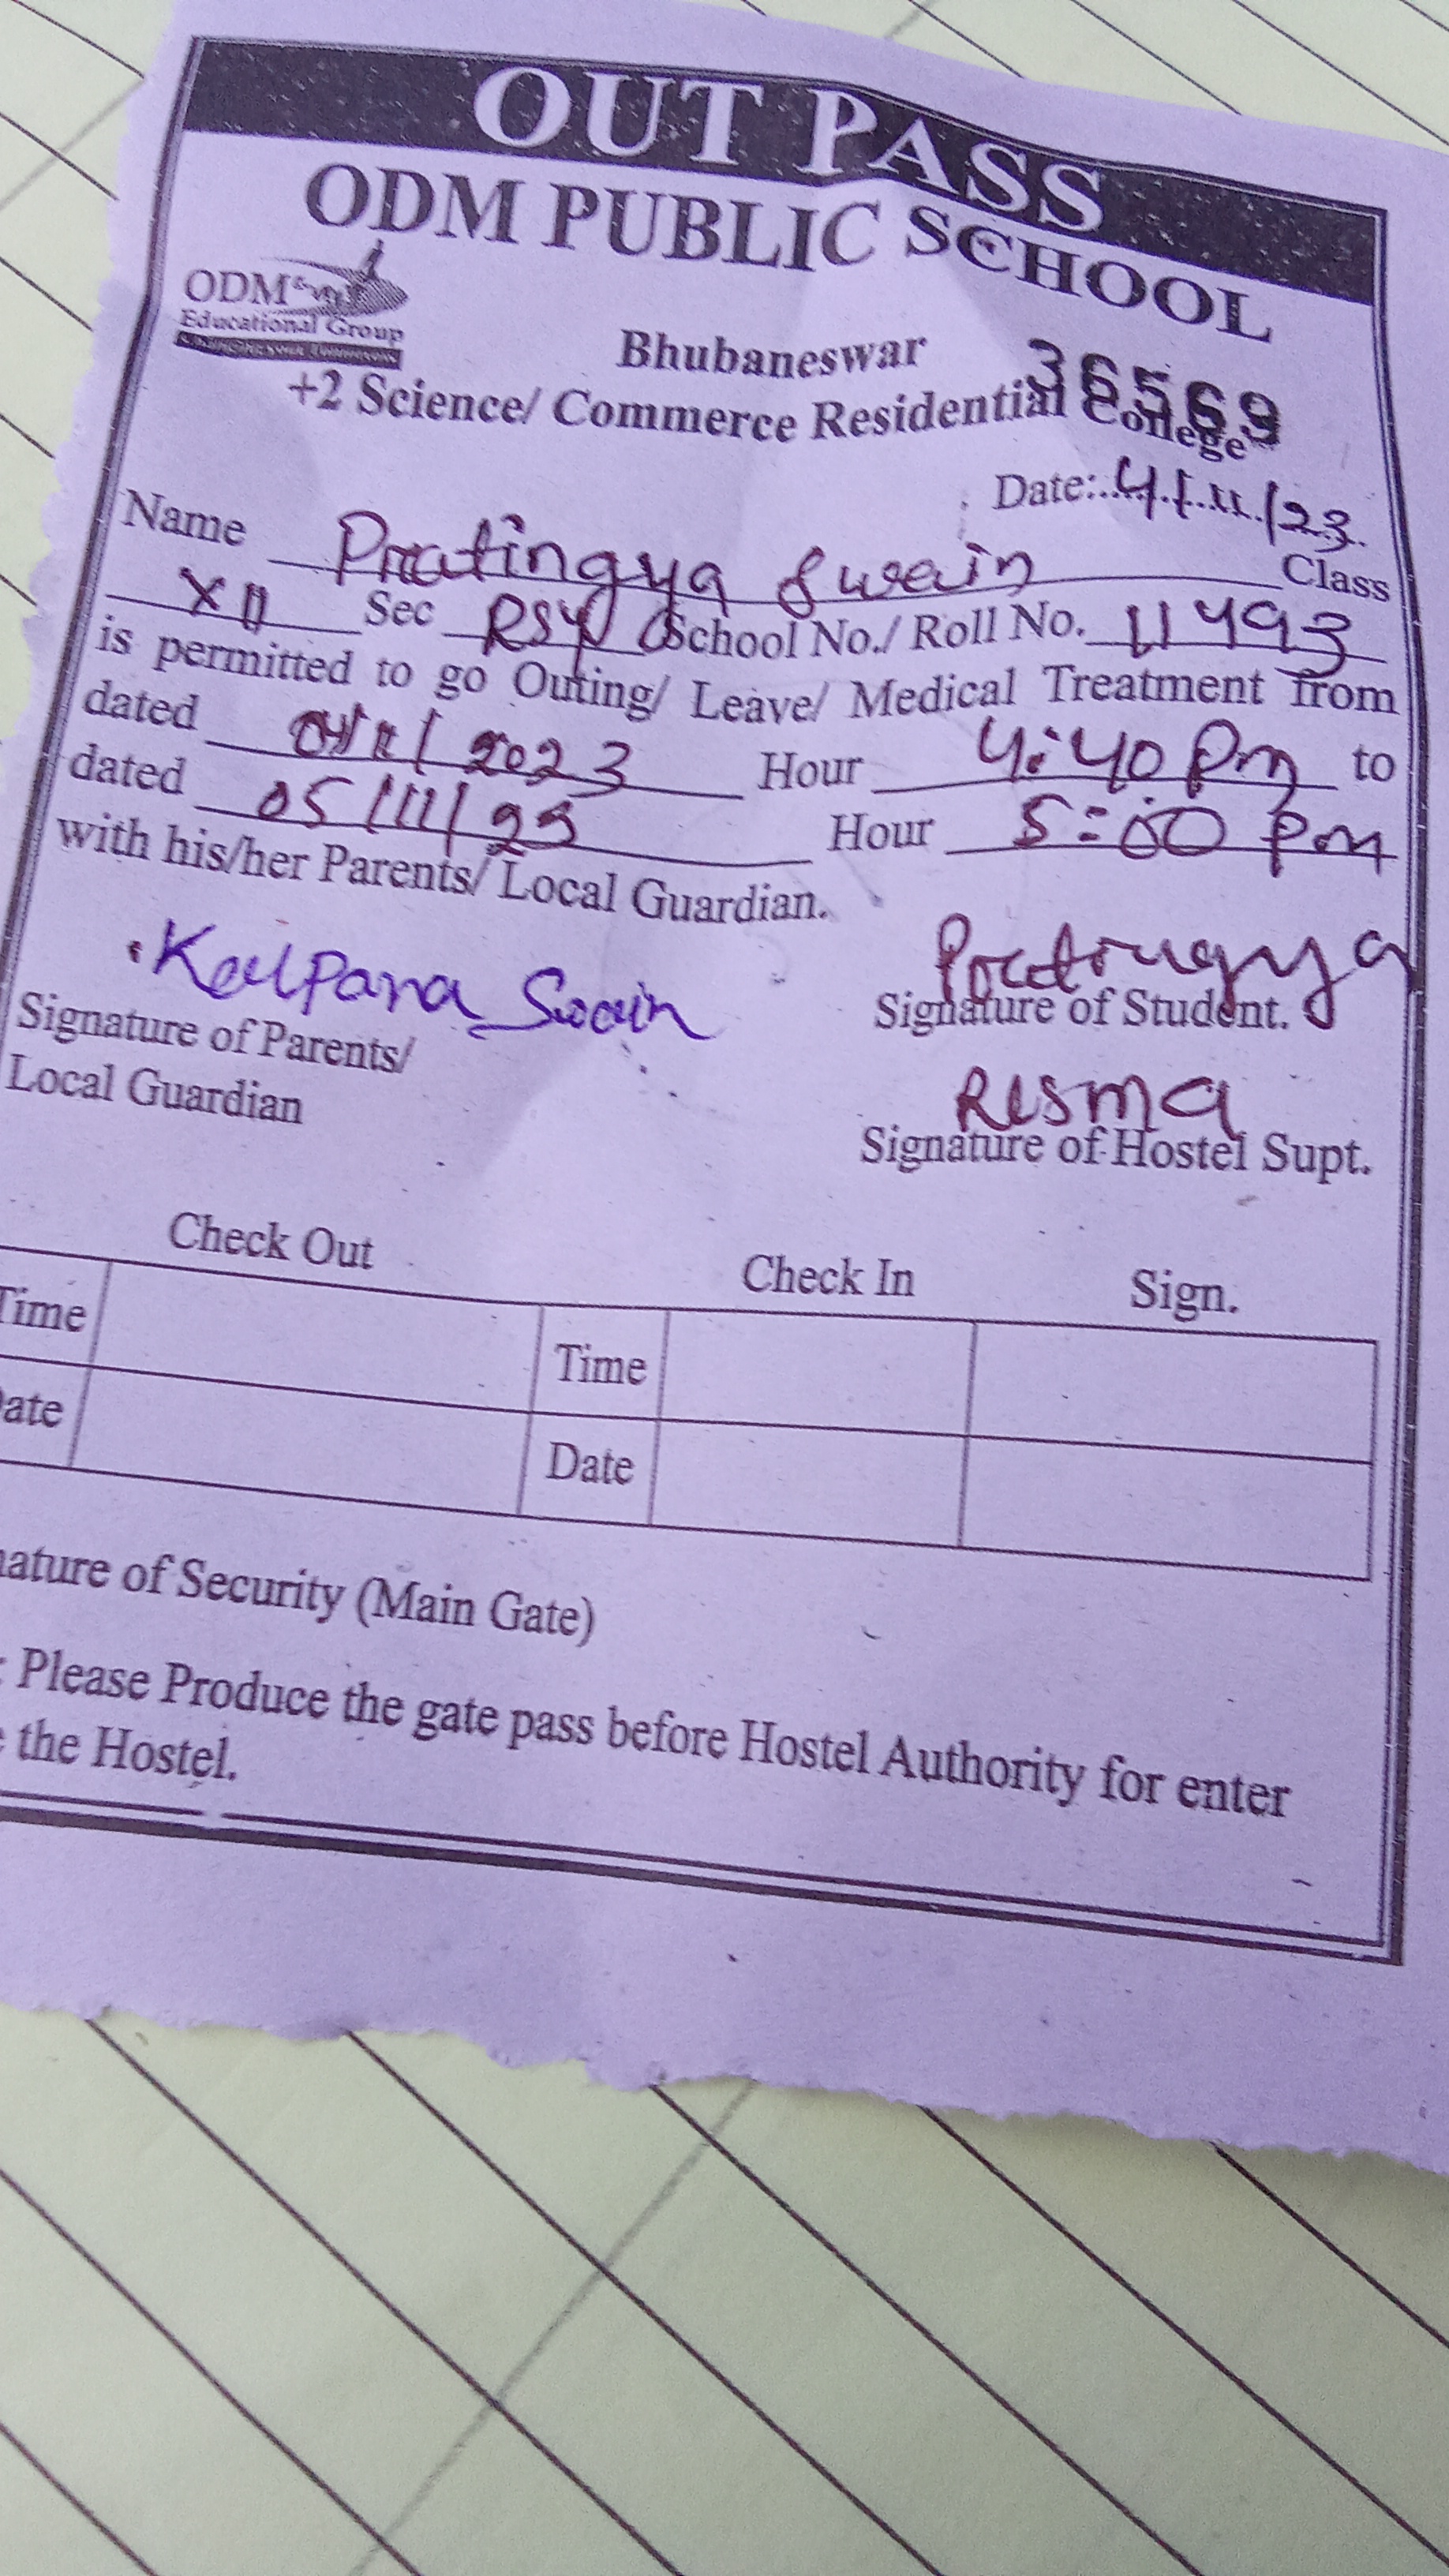 OUT PASS
ODM PUBLIC SCHOOL
ODM
Educational Group
Bhubaneswar
36569
+2 Science/ Commerce Residential College
Date:..4/11/23
Name Pratingya Swain Class
XII Sec School No./ Roll No. 11493
is permitted to go Outing/ Leave/ Medical Treatment from
dated 04/11/2023 Hour 4:40 Pm to
dated 05/11/23 Hour 5:00 Pm
with his/her Parents/ Local Guardian.
Kalpana Swain
Pratingya
Signature of Parents/
Local Guardian
Signature of Student.
Resma
Signature of Hostel Supt.
Check Out Check In Sign.
Time Time
ate Date
nature of Security (Main Gate)
: Please Produce the gate pass before Hostel Authority for enter
the Hostel.